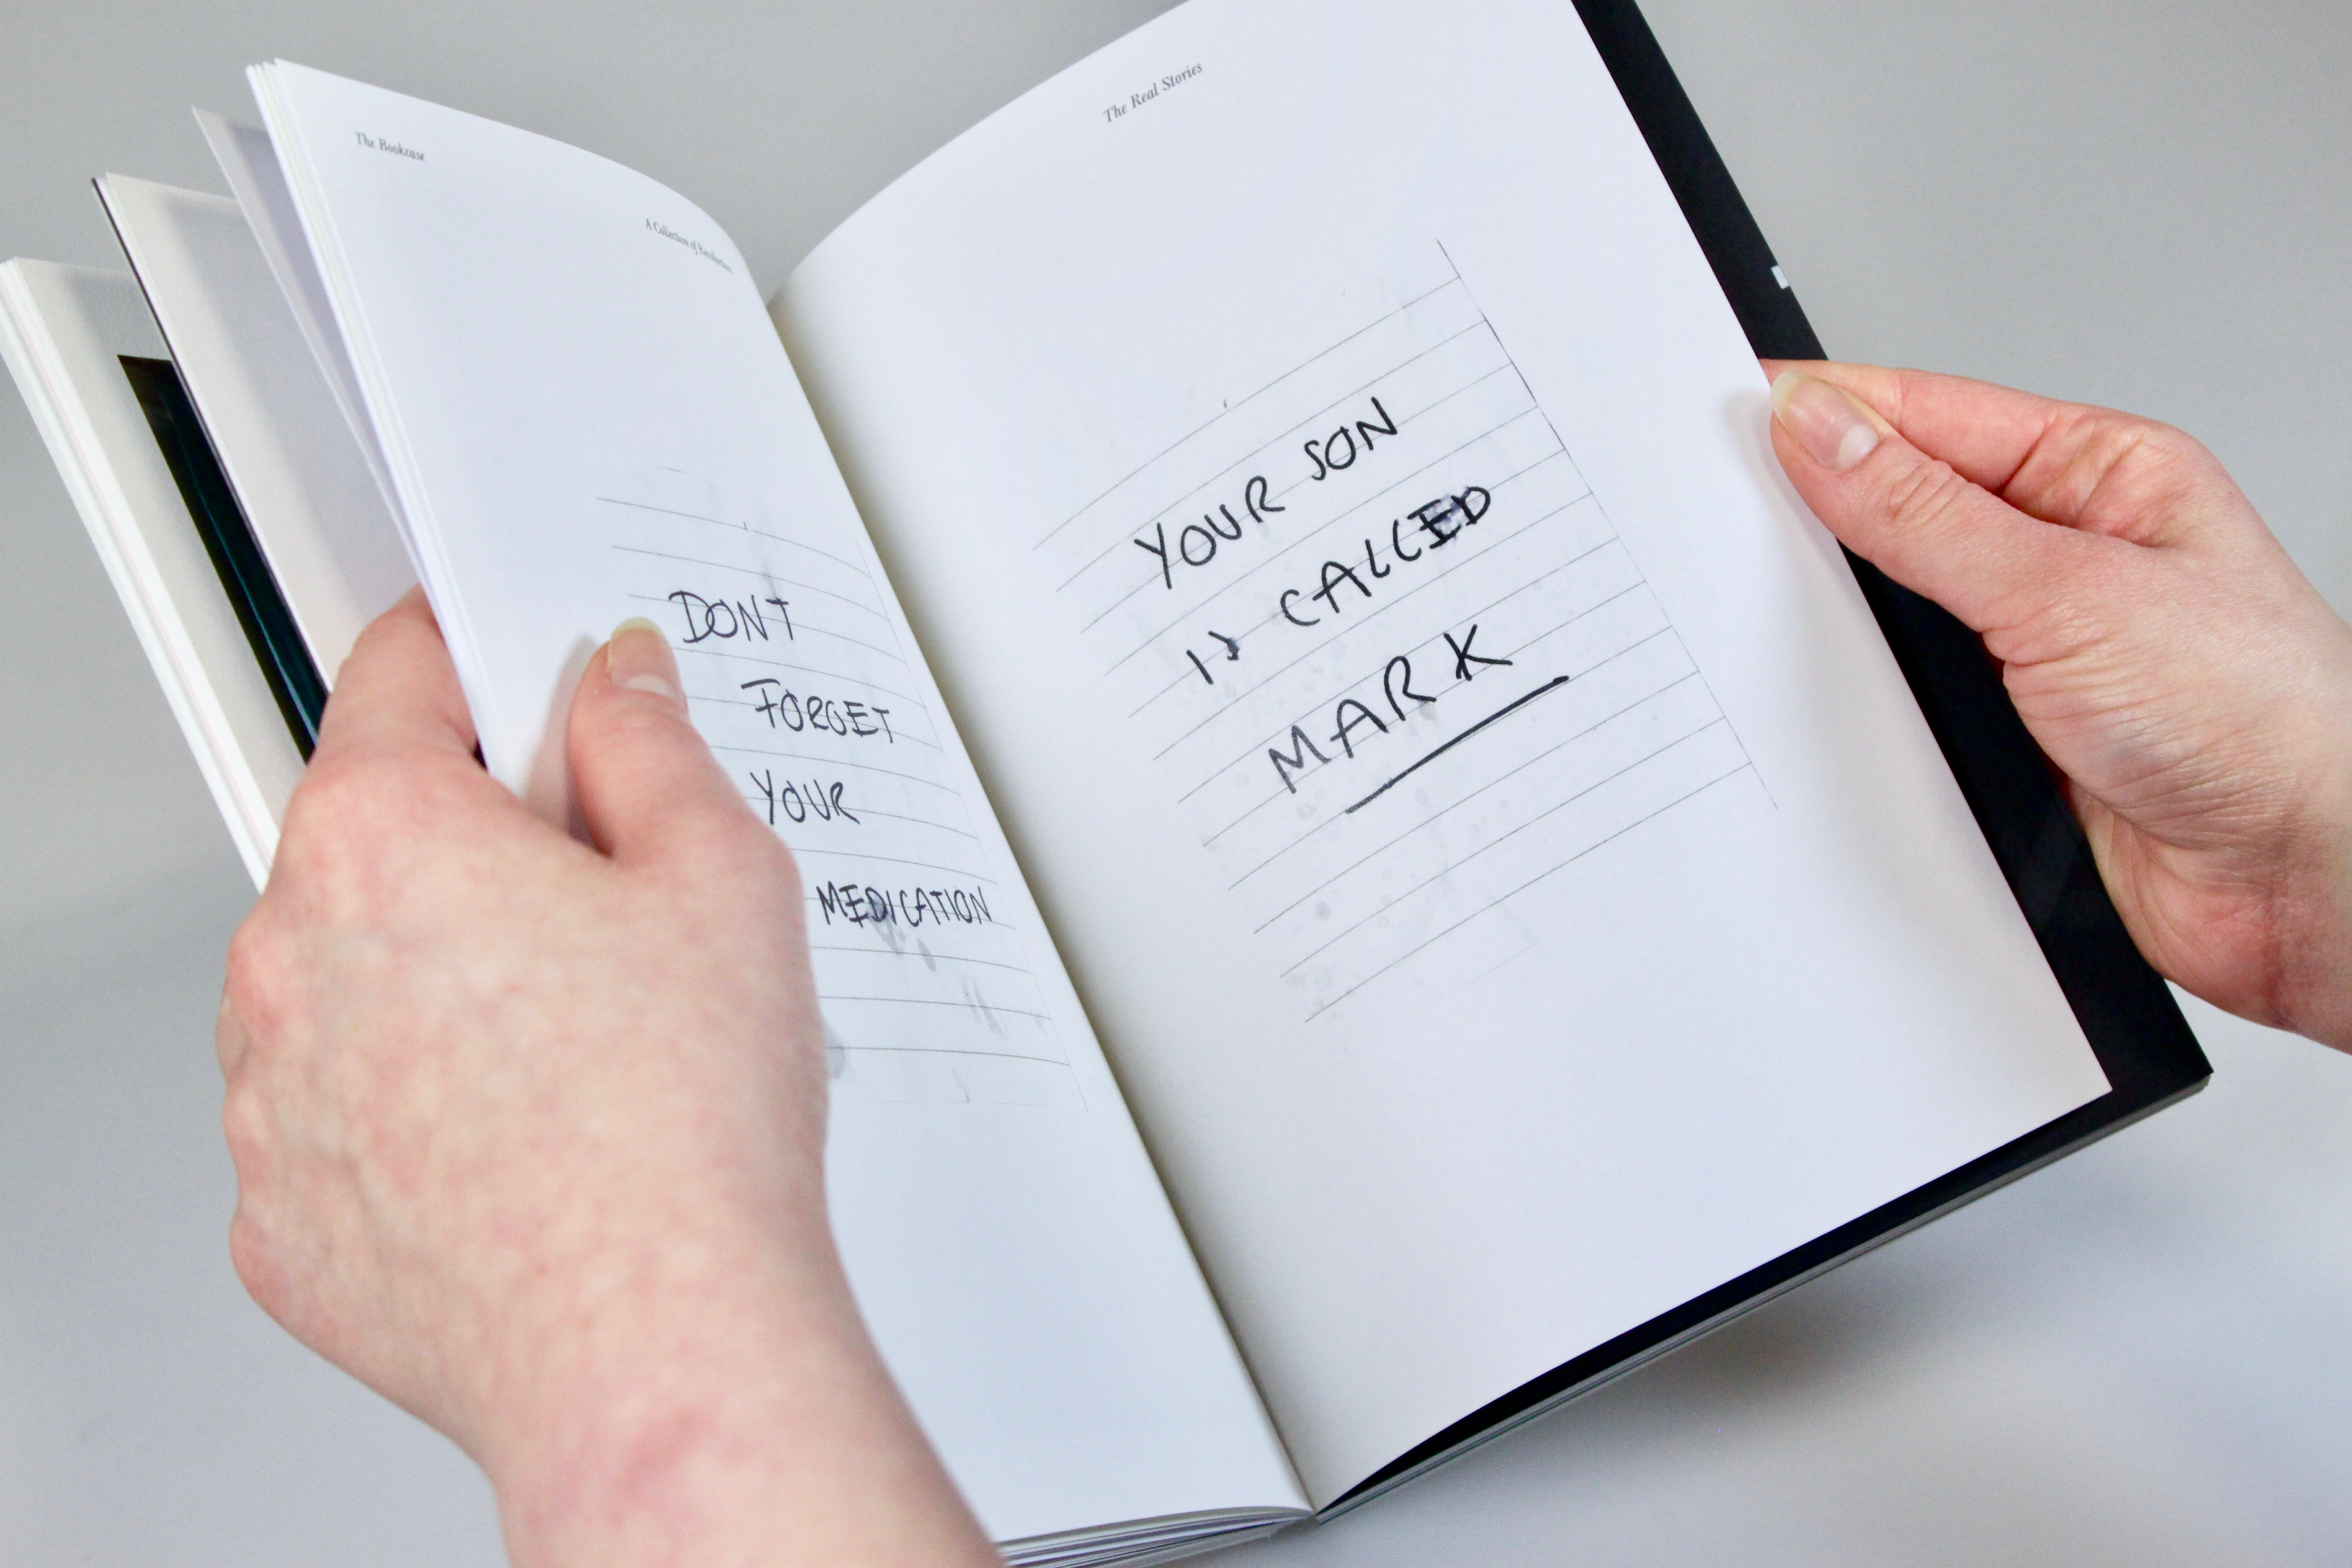 The Bookcase
A Collection of Recollections
DONT
FORGET
YOUR
MEDICATION
The Real Stories
YOUR SON
IS CALLED
MARK